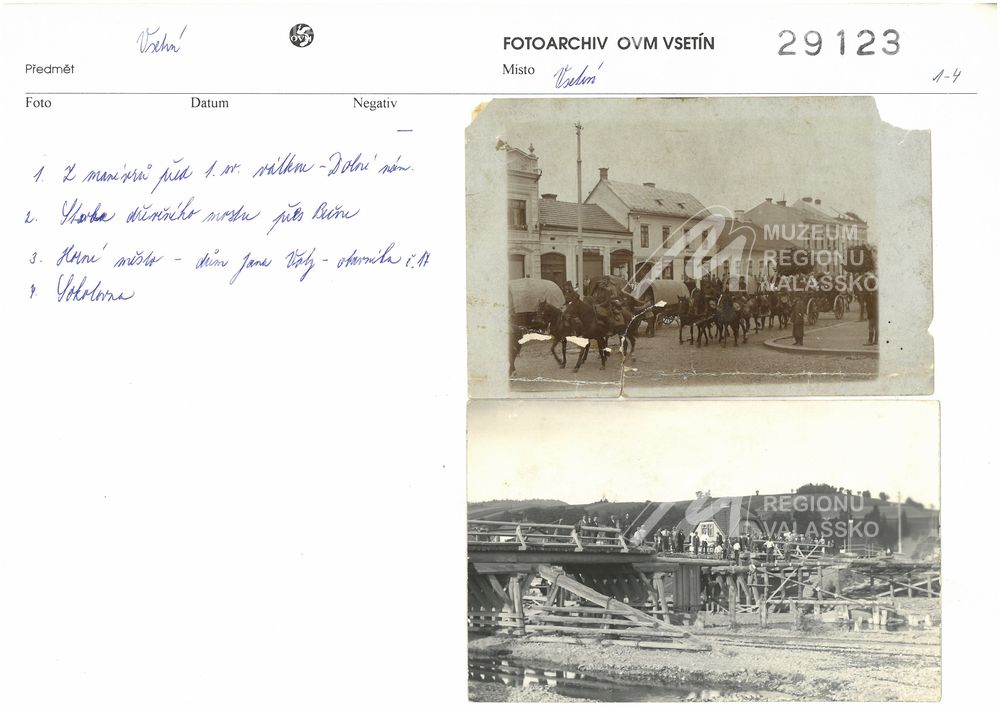 Vsetín
OVM
FOTOARCHIV OVM VSETÍN
29123
Předmět
Místo Vsetín
1-4
Foto Datum Negativ
—
1. Z manévrů před 1. sv. válkou - Dolní nám.
2. Stavba dřevěného mostu přes Bečvu
3. Horní město - dům Jana - č. 17
4. Sokolovna
MUZEUM
REGIONU
VALAŠSKO
MUZEUM
REGIONU
VALAŠSKO